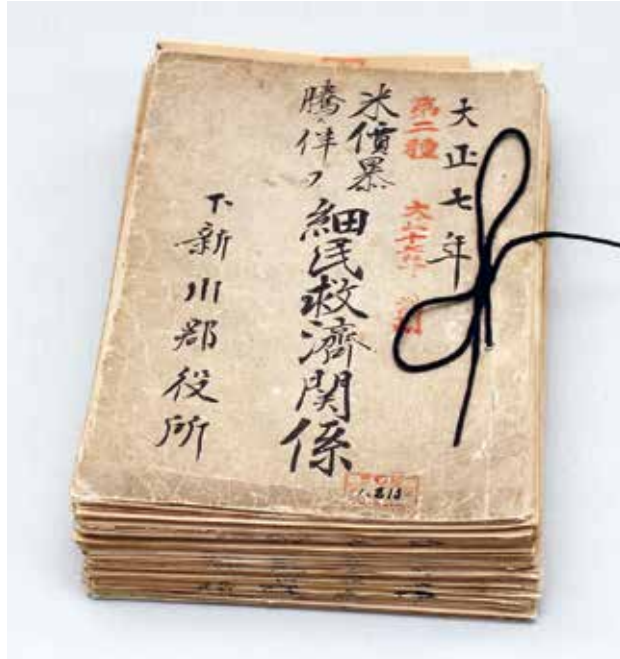 大正七年
第二種
米價暴
騰ニ伴フ
細民救済関係
下新川郡役所